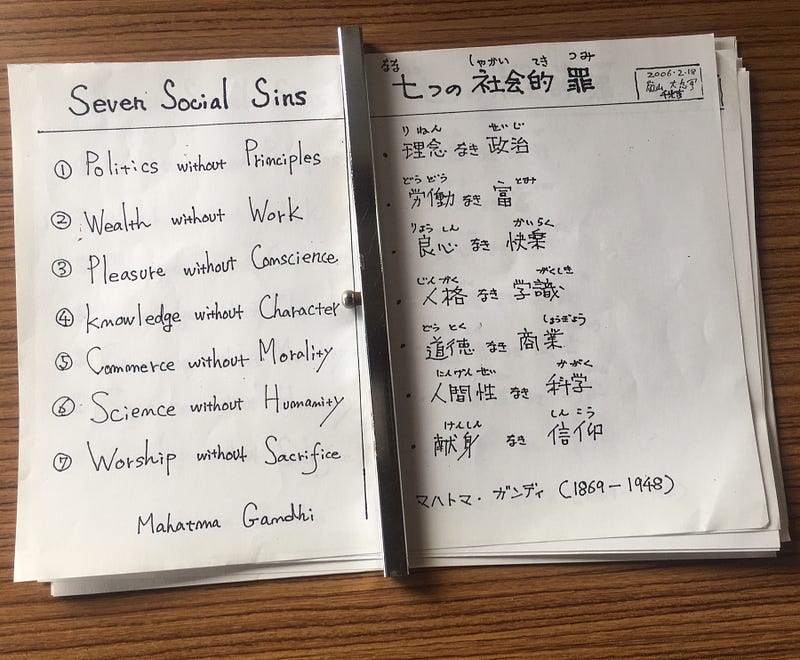 Seven Social Sins
① Politics without Principles
② Wealth without Work
③ Pleasure without Conscience
④ Knowledge without Character
⑤ Commerce without Morality
⑥ Science without Humanity
⑦ Worship without Sacrifice
Mahatma Gandhi
なな しゃかい てき つみ
七つの 社会的 罪
2006・2・18
りねん せいじ
・理念 なき 政治
ろうどう とみ
・労働 なき 富
りょうしん かいらく
・良心 なき 快楽
じんかく がくしき
・人格 なき 学識
どうとく しょうぎょう
・道徳 なき 商業
にんげんせい かがく
・人間性 なき 科学
けんしん しんこう
・献身 なき 信仰
マハトマ・ガンディ (1869-1948)